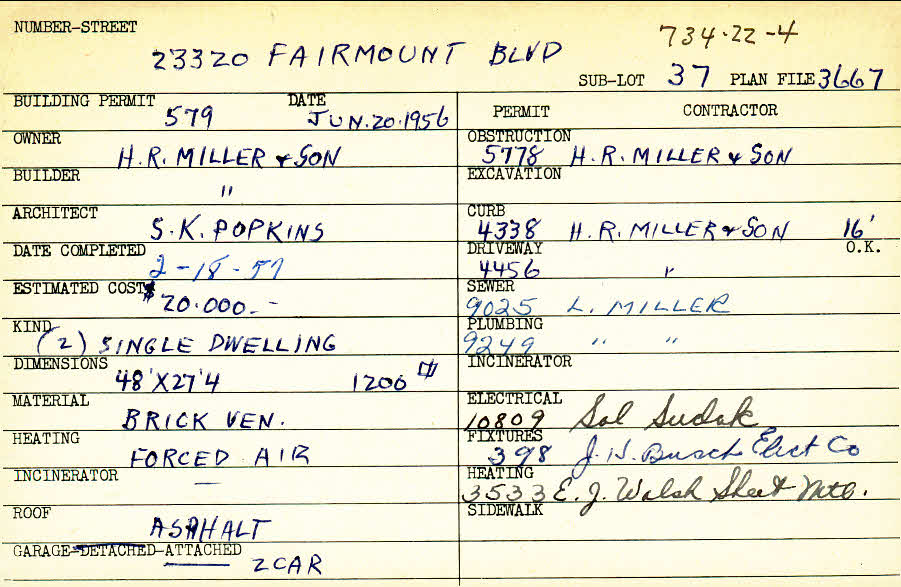 NUMBER-STREET
734-22-4
23320 FAIRMOUNT BLVD
SUB-LOT 37 PLAN FILE 3667
BUILDING PERMIT DATE
579 JUN.20.1956
OWNER
H.R. MILLER & SON
BUILDER
"
ARCHITECT
S.K. POPKINS
DATE COMPLETED
2-18-57
ESTIMATED COST
$20.000.-
KIND
(2) SINGLE DWELLING
DIMENSIONS
48'X27'4 1200
MATERIAL
BRICK VEN.
HEATING
FORCED AIR
INCINERATOR
—
ROOF
ASAHALT
GARAGE-DETACHED-ATTACHED
2 CAR
PERMIT CONTRACTOR
OBSTRUCTION
5778 H.R. MILLER & SON
EXCAVATION
CURB
4338 H.R. MILLER & SON 16'
DRIVEWAY O.K.
4456 "
SEWER
9025 L. MILLER
PLUMBING
9249 " "
INCINERATOR
ELECTRICAL
10809 Sol Sudak
FIXTURES
398 J.H. Busch Elect Co
HEATING
3533 E.J. Walsh Sheet Mtl.
SIDEWALK